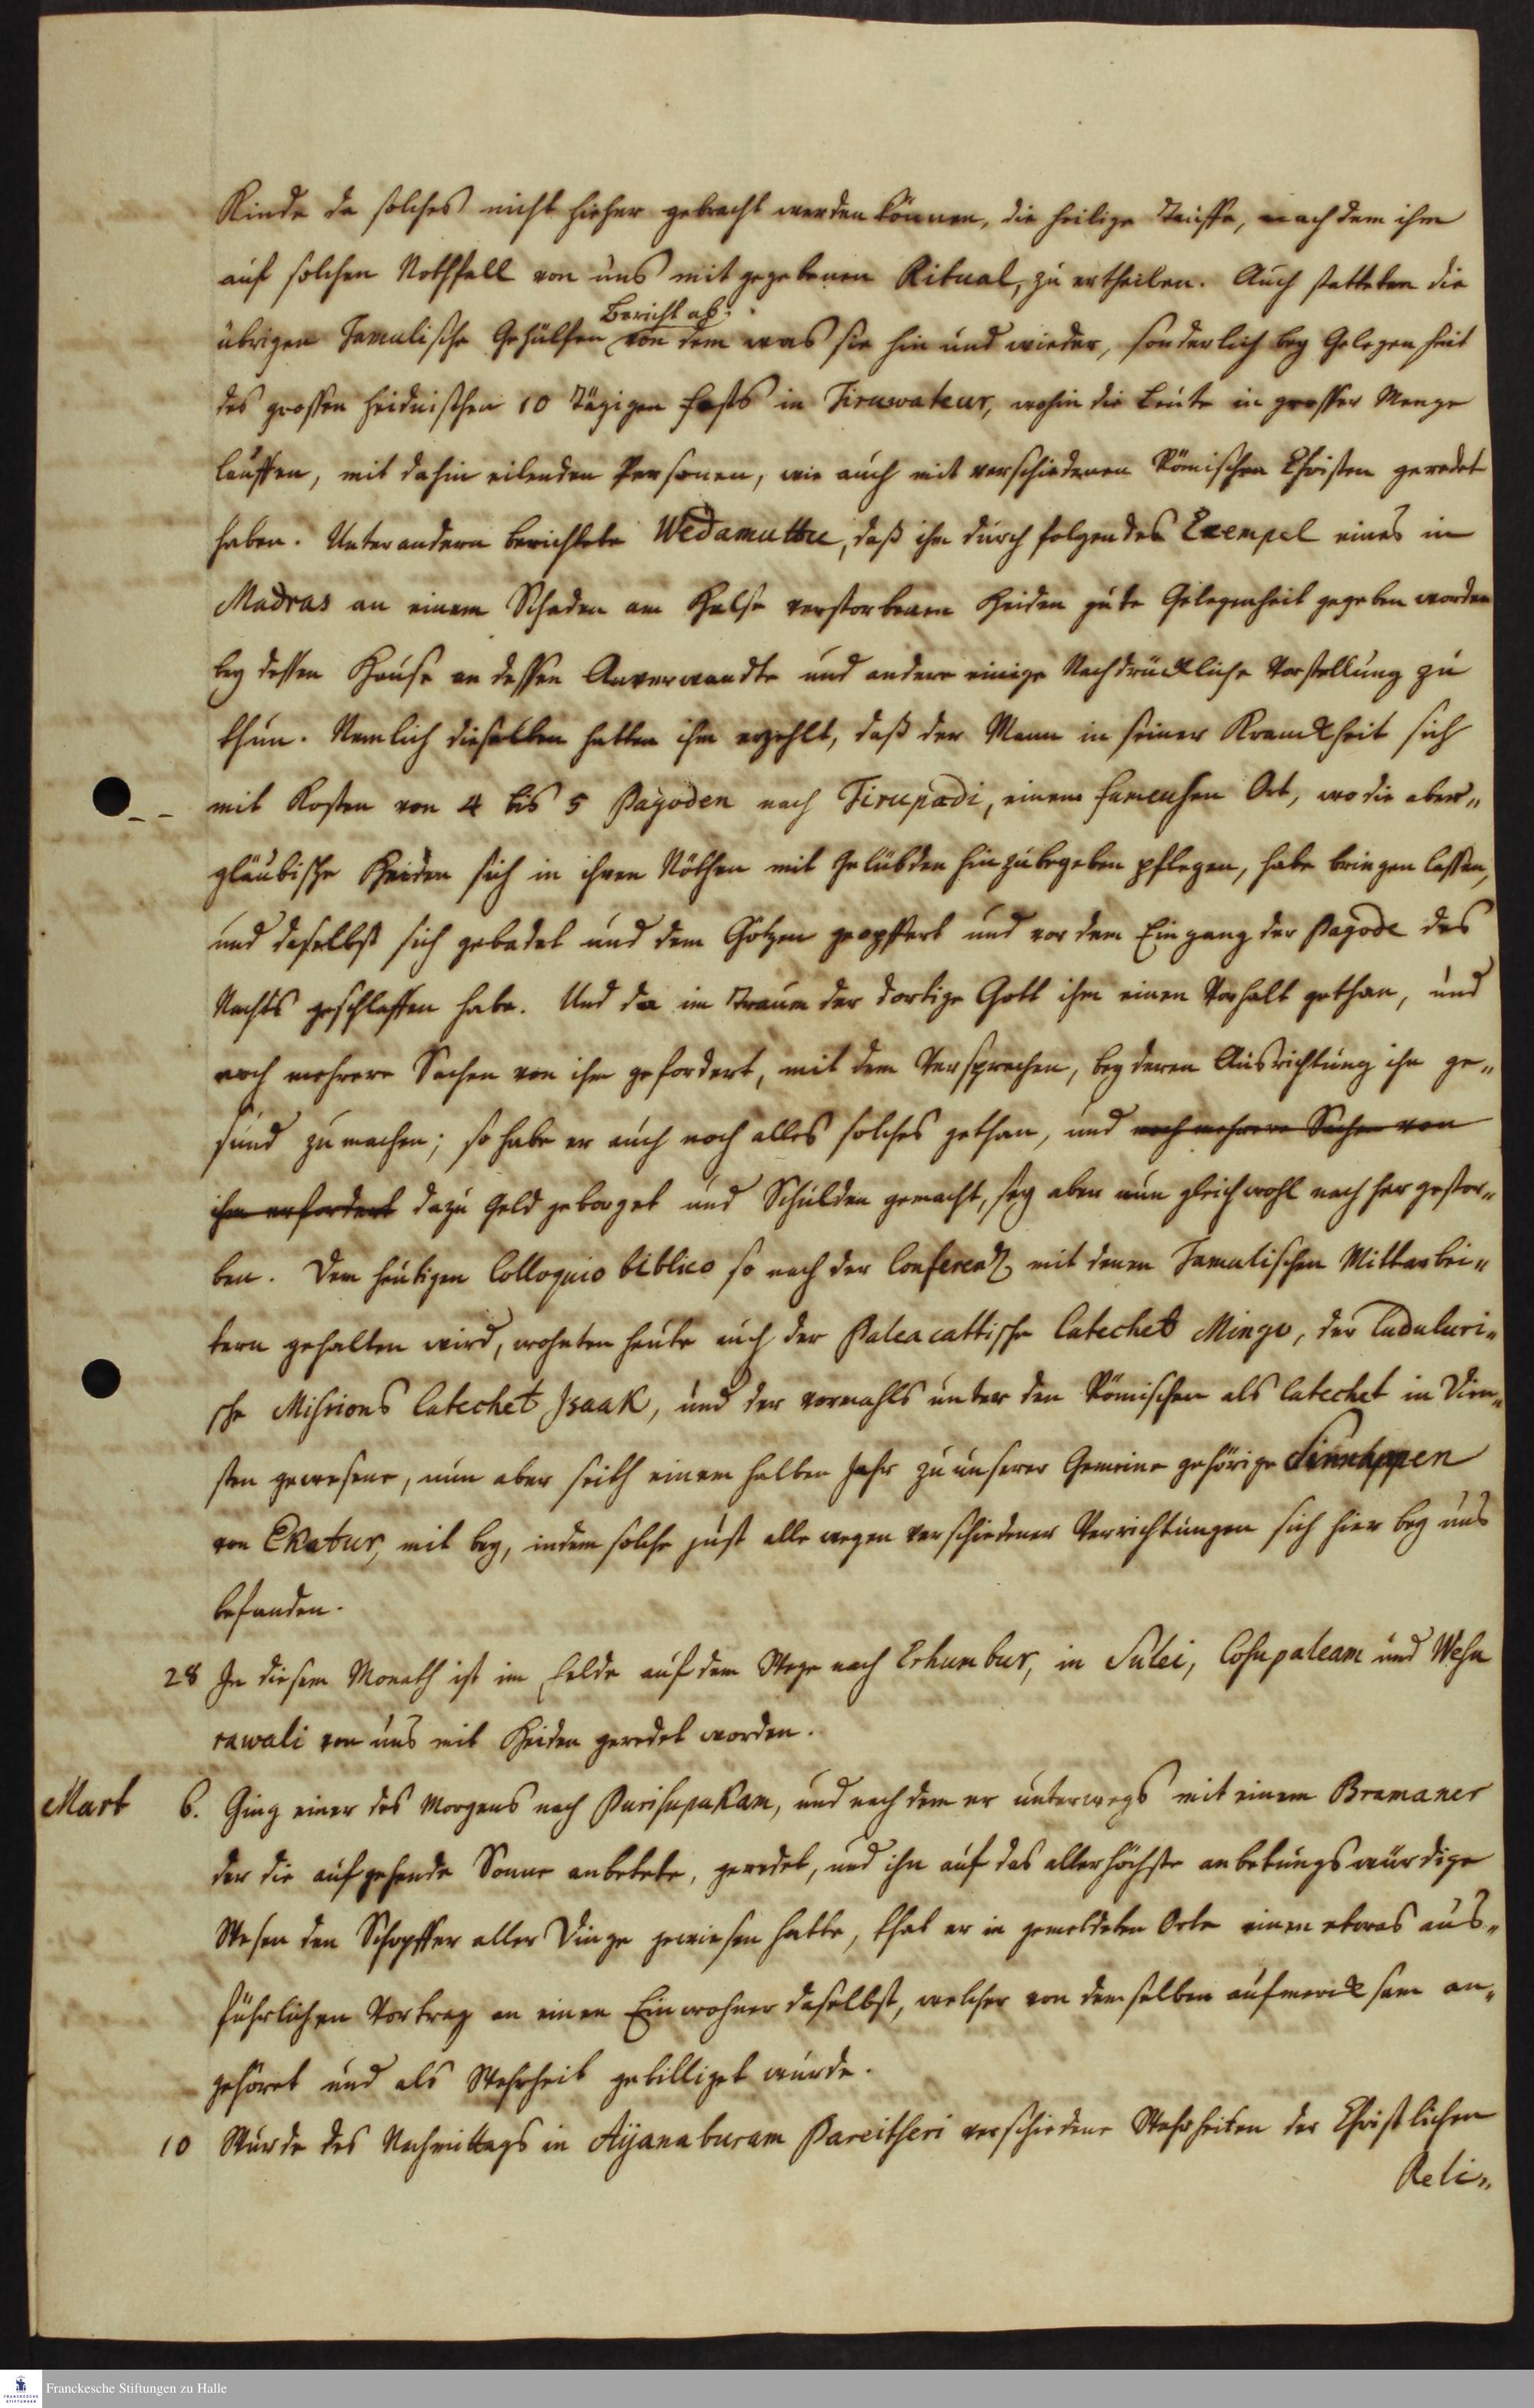 Kinde da solches nicht hieher gebracht werden können, die heilige Tauffe, nach dem ihm
auf solchen Nothfall von uns mit gegebenen Ritual, zu ertheilen. Auch statteten die
Bericht ab,
übrigen Tamulische Gehülfen von dem was sie hin und wieder, sonderlich bey Gelegenheit
des grossen heidnischen 10 Tägigen Fests in Tiruwateur, wohin die Leute in grosser Menge
lauffen, mit dahin eilenden Personen, wie auch mit verschiedenen Römischen Christen geredet
haben. Unter andern berichtete Wedamuttu, daß ihm durch folgendes Exempel eines in
Madras an einem Schaden am Halse verstorbenen Heiden gute Gelegenheit gegeben worden
bey dessen Hause an dessen Anverwandte und andere einige Nachdrückliche Vorstellung zu
thun. Nemlich dieselben hatten ihm erzehlt, daß der Mann in seiner Kranckheit sich
mit Kosten von 4 bis 5 Pagoden nach Tirupadi, einem fameusen Ort, wo die aber„
gläubische Heiden sich in ihren Nöthen mit Gelübden hinzubegeben pflegen, habe bringen lassen,
und daselbst sich gebadet und dem Götzen geopffert und vor dem Eingang der Pagode des
Nachts geschlaffen habe. Und da im Traum der dortige Gott ihm einen Vorhalt gethan, und
noch mehrere Sachen von ihm gefordert, mit dem Versprechen, bey deren Ausrichtung ihn ge„
sund zu machen; so habe er auch noch alles solches gethan, und noch mehrere Sachen von
ihm erfordert dazu Geld geborget und Schulden gemacht, sey aber nun gleichwohl nach her gestor„
ben. Dem heutigen Colloquio biblico so nach der Conferentz mit denen Tamulischen Mittarbei„
tern gehalten wird, wohnten heute auch der Paleacattische Catechet Mingo, der Cudeluri„
sche Missions Catechet Isaak, und der vormahls unter den Römischen als Catechet in Dien„
sten gewesene, nun aber seith einem halben Jahr zu unserer Gemeine gehörige Sinnappen
von Ekatur, mit bey, indem solche just alle wegen verschiedener Verrichtungen sich hier bey uns
befanden.
28 In diesem Monath ist im Felde auf dem Wege nach Erhumbur, in Sulei, Cosupaleam und Wesu
rawali von uns mit Heiden geredet worden.
Mart 6. Ging einer des Morgens nach Purisupakam, und nach dem er unterwegs mit einem Bramaner
der die aufgehende Sonne anbetete, geredet, und ihn auf das allerhöchste anbetungswürdige
Wesen den Schöpffer aller Dinge gewiesen hatte, that er in gemeldeten Orte einen etwas aus„
führlichen Vortrag an einen Einwohner daselbst, welcher von demselben aufmercksam an„
gehöret und als Wahrheit gebilliget wurde.
10 Wurde des Nachmittags in Aijanaburam Pareitheri verschiedene Wahrheiten der Christlichen
Reli„
Franckesche Stiftungen zu Halle